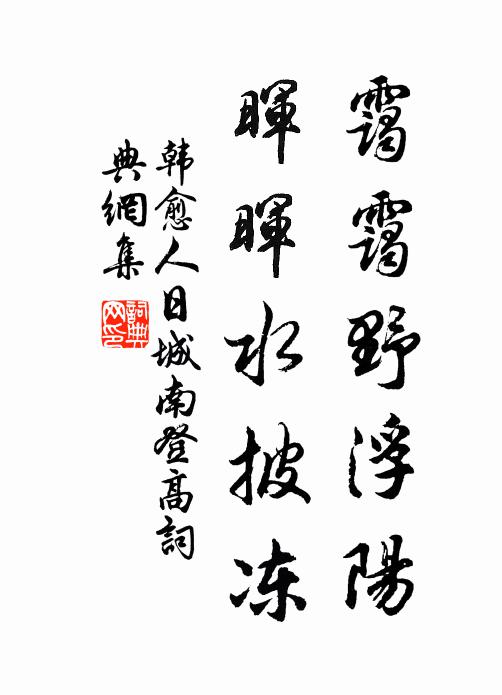 靄靄野浮陽
暉暉水披冻
韩愈人日城南登高詞
典網集
詞典
网印